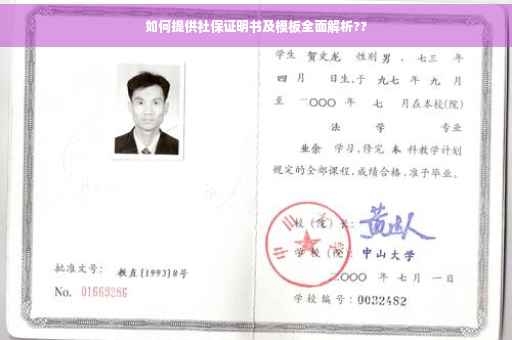 如何提供社保证明书及模板全面解析??
学生 贺文龙 性别 男 、七三 年
四 月 日生,于 九七 年 九 月
至 二〇〇〇 年 七 月在本校(院)
法 学 专业
业余 学习,修完 本 科教学计划
规定的全部课程,成绩合格,准予毕业。
校(院)长:
学校(院): 中山大学
二〇〇〇 年 七 月 一 日
批准文号: 教直[1993]8号
No. 01669286
学校编号: 0032482